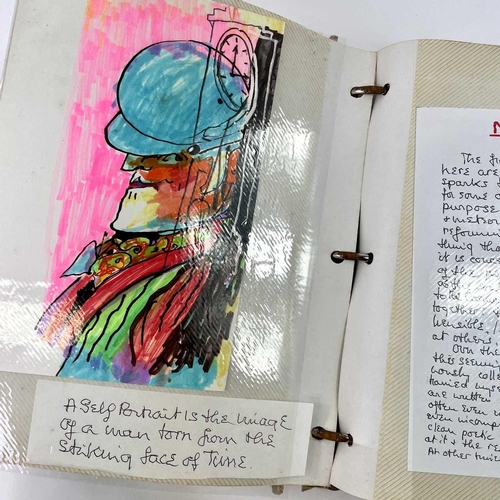 A Self Portrait is the image
of a man torn from the
striking face of Time.
N
The fi
here are
sparks
for some
purpose
& meteor
reformin
thing tha
it is
of the
to be
together
hensible.
at others.
Own th
this seemin
hously colle
tained myse
are written
often even
even incomp
clean poetic
at it & the re
At other time